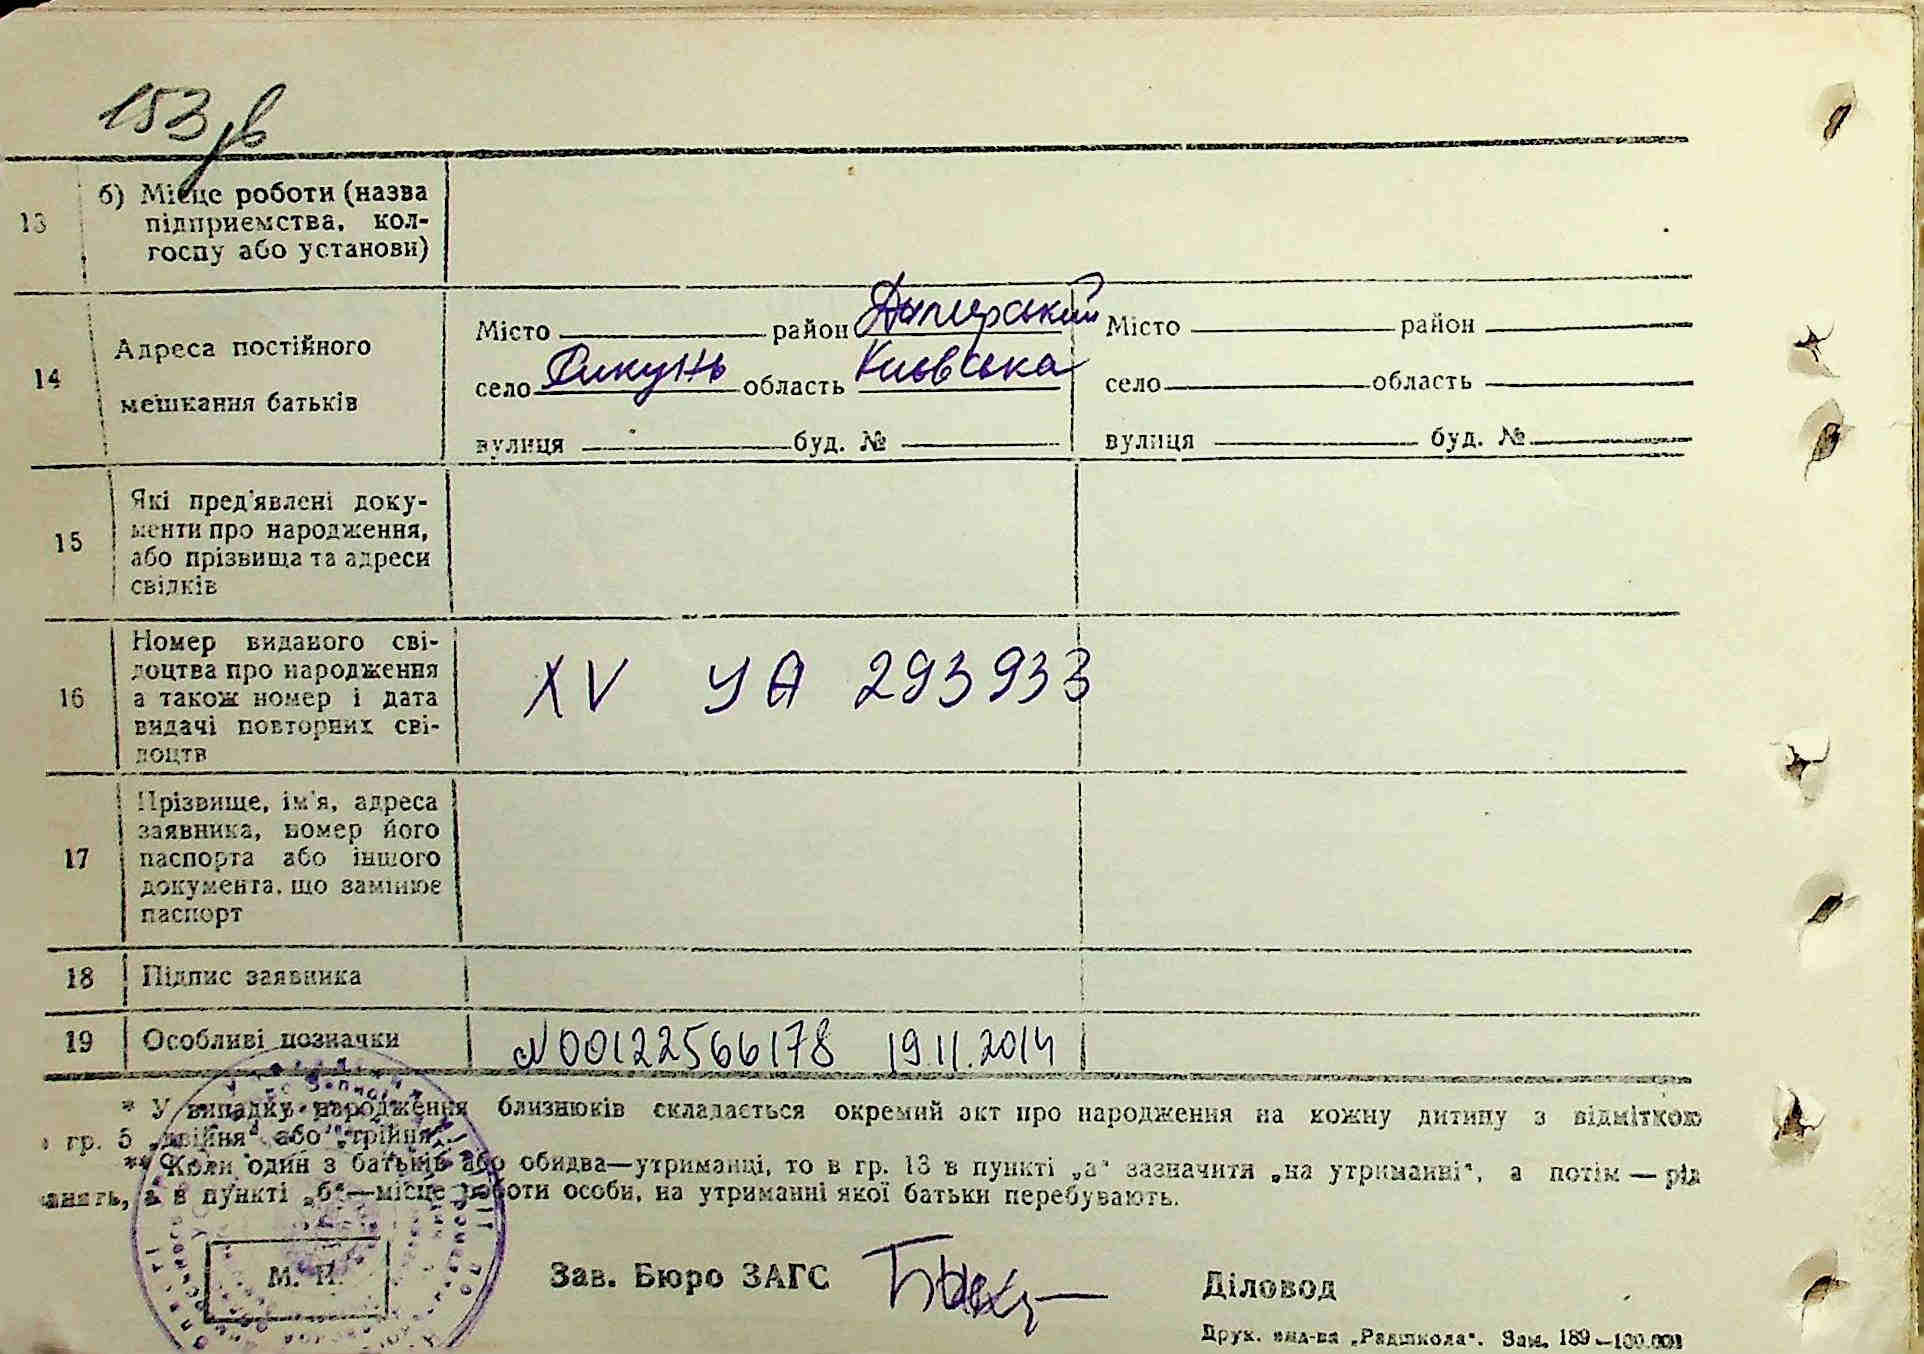 153 зв
13 б) Місце роботи (назва
підприємства, кол-
госпу або установи)
14 Адреса постійного
мешкання батьків
Місто район Димерський Місто район
село Сикунь область Київська село область
вулиця буд. № вулиця буд. №
15 Які пред'явлені доку-
менти про народження,
або прізвища та адреси
свідків
16 Номер виданого сві-
доцтва про народження
а також номер і дата
видачі повторних сві-
доцтв
XV УА 293933
17 Прізвище, ім'я, адреса
заявника, номер його
паспорта або іншого
документа, що замінює
паспорт
18 Підпис заявника
19 Особливі позначки N00122566178 19.11.2014
* У випадку народження близнюків складається окремий акт про народження на кожну дитину з відміткою
в гр. 5 „двійня" або „трійня".
** Коли один з батьків або обидва—утриманці, то в гр. 13 в пункті „а" зазначити „на утриманні", а потім — рід
занять, а в пункті „б"—місце роботи особи, на утриманні якої батьки перебувають.
М. П.
Зав. Бюро ЗАГС Діловод
Друк. вид-ва „Радшкола". Зам. 189—100.000